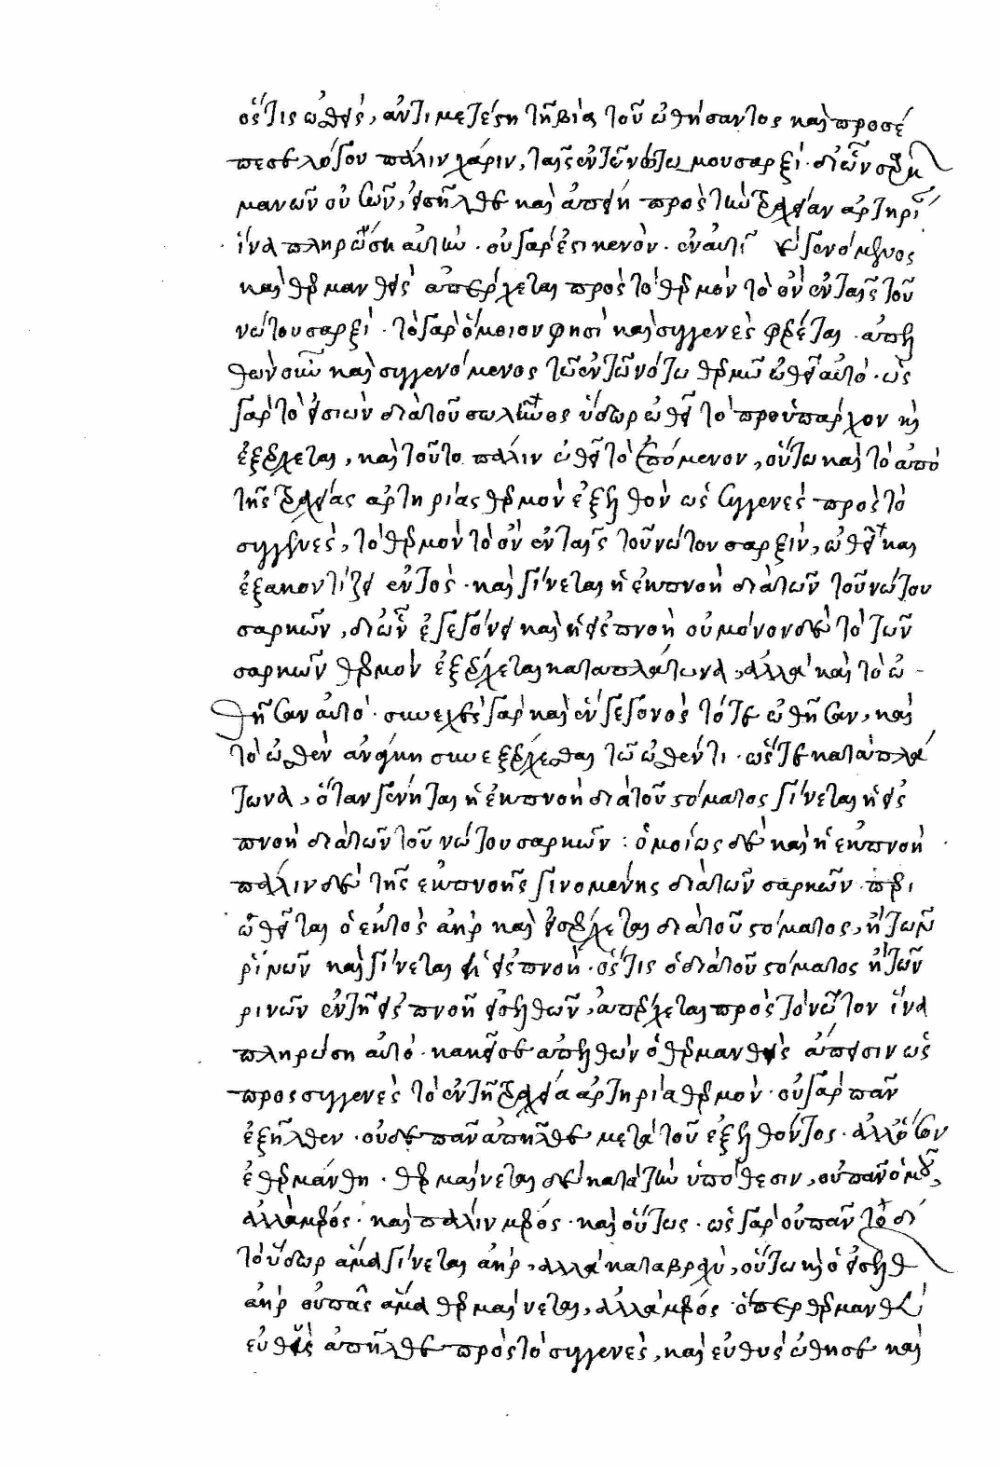 ὅστις ὠθεὶς, ἀντιμετέστη τῇ βίᾳ τοῦ ὠθήσαντος καὶ προσέ
πεσε λόγου πάλιν χάριν, ταῖς ἐν τῷ νώτῳ μου σαρξί· δι' ὧν
μανῶν οὐσῶν, εἰσῆλθε καὶ ἀπῄει πρὸς τὴν τραχεῖαν ἀρτηρί
ἵνα πληρώσῃ αὐτὴν· οὐ γάρ ἐστι κενὸν· ἐν αὐτῇ γενόμενος
καὶ θερμανθεὶς ἀπέρχεται πρὸς τὸ θερμὸν τὸ ὂν ἐν ταῖς τοῦ
νώτου σαρξί· τὸ γὰρ ὅμοιον φησὶ καὶ συγγενὲς φέρεται· ἀπελ
θὼν οὖν καὶ συγγενόμενος τῷ ἐν τῷ νώτῳ θερμῷ ὠθεῖ αὐτό· ὡς
γὰρ τὸ εἰσιὸν διὰ τοῦ σωλῆνος ὕδωρ ὠθεῖ τὸ προϋπάρχον καὶ
ἐξέρχεται, καὶ τοῦτο πάλιν ὠθεῖ τὸ ἑπόμενον, οὕτω καὶ τὸ ἀπὸ
τῆς τραχείας ἀρτηρίας θερμὸν ἐξελθὸν ὡς συγγενὲς πρὸς τὸ
συγγενὲς, τὸ θερμὸν τὸ ὂν ἐν ταῖς τοῦ νώτου σαρξὶν, ὠθεῖ καὶ
ἐξακοντίζει ἐντὸς· καὶ γίνεται ἡ ἐκπνοὴ διὰ τῶν τοῦ νώτου
σαρκῶν, δι' ὧν ἐγεγόνει καὶ ἡ εἰσπνοὴ οὐ μόνον δὲ τὸ τῶν
σαρκῶν θερμὸν ἐξέρχεται κατὰ πλάτωνα, ἀλλὰ καὶ τὸ ὠ-
θῆσαν αὐτό· συνεχὲς γὰρ καὶ ἓν γεγονὸς τό τε ὠθῆσαν, καὶ
τὸ ὠθὲν ἀνάγκη συνεξέρχεσθαι τῷ ὠθέντι· ὥστε κατὰ πλά
τωνα, ὅταν γένηται ἡ ἐκπνοὴ διὰ τοῦ στόματος γίνεται ἡ εἰσ
πνοὴ διὰ τῶν τοῦ νώτου σαρκῶν: ὁμοίως δὲ καὶ ἡ ἐκπνοὴ
πάλιν δὲ τῆς ἐκπνοῆς γινομένης διὰ τῶν σαρκῶν· περι
ωθεῖται ὁ ἐκτὸς ἀὴρ καὶ εἰσέρχεται διὰ τοῦ στόματος, ἢ τῶν
ῥινῶν καὶ γίνεται ἡ εἰσπνοὴ· ὅστις ὁ διὰ τοῦ στόματος ἢ τῶν
ῥινῶν ἐν τῇ εἰσπνοῇ εἰσελθὼν, ἀπέρχεται πρὸς τὸ νῶτον ἵνα
πληρώσῃ αὐτό· κἀκεῖσε ἀπελθὼν ὁ θερμανθεὶς ἄπεισιν ὡς
πρὸς συγγενὲς τὸ ἐν τῇ τραχείᾳ ἀρτηρίᾳ θερμὸν· οὐ γὰρ πᾶν
ἐξῆλθεν· οὐδὲ πᾶν ἀπῆλθε μετὰ τοῦ ἐξελθόντος· ἀλλ' ὅσον
ἐθερμάνθη· θερμαίνεται δὲ κατὰ τὴν ὑπόθεσιν, οὐ πᾶν ὁμοῦ,
ἀλλὰ μέρος· καὶ πάλιν μέρος· καὶ οὕτως· ὡς γὰρ οὐ πᾶν
τὸ ὕδωρ ἅμα γίνεται ἀὴρ, ἀλλὰ κατὰ βραχὺ, οὕτω καὶ ὁ εἰσελθ
ἀὴρ οὐ πᾶς ἅμα θερμαίνεται, ἀλλὰ μέρος· ὅπερ θερμανθὲν
εὐθὺς ἀπῆλθε πρὸς τὸ συγγενὲς, καὶ εὐθὺς ὤθησε καὶ